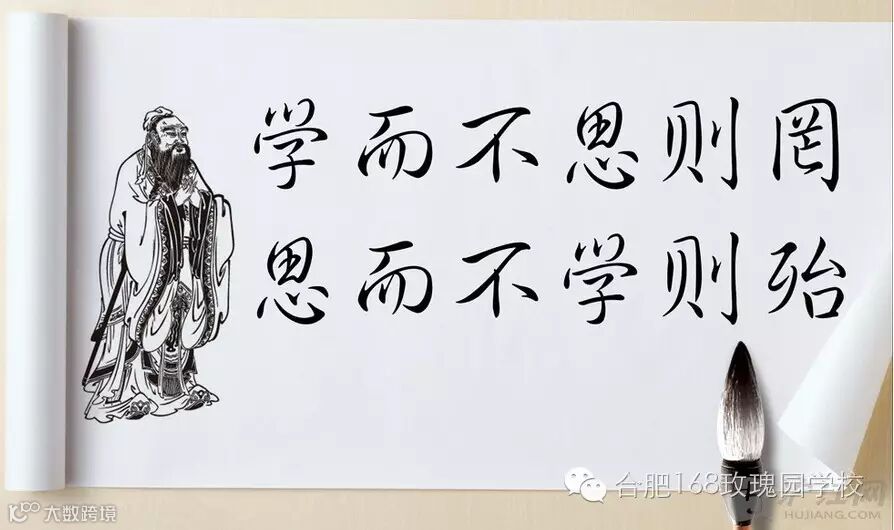 学而不思则罔
思而不学则殆
合肥168玫瑰园学校
大数跨境
HUJIANG.COM